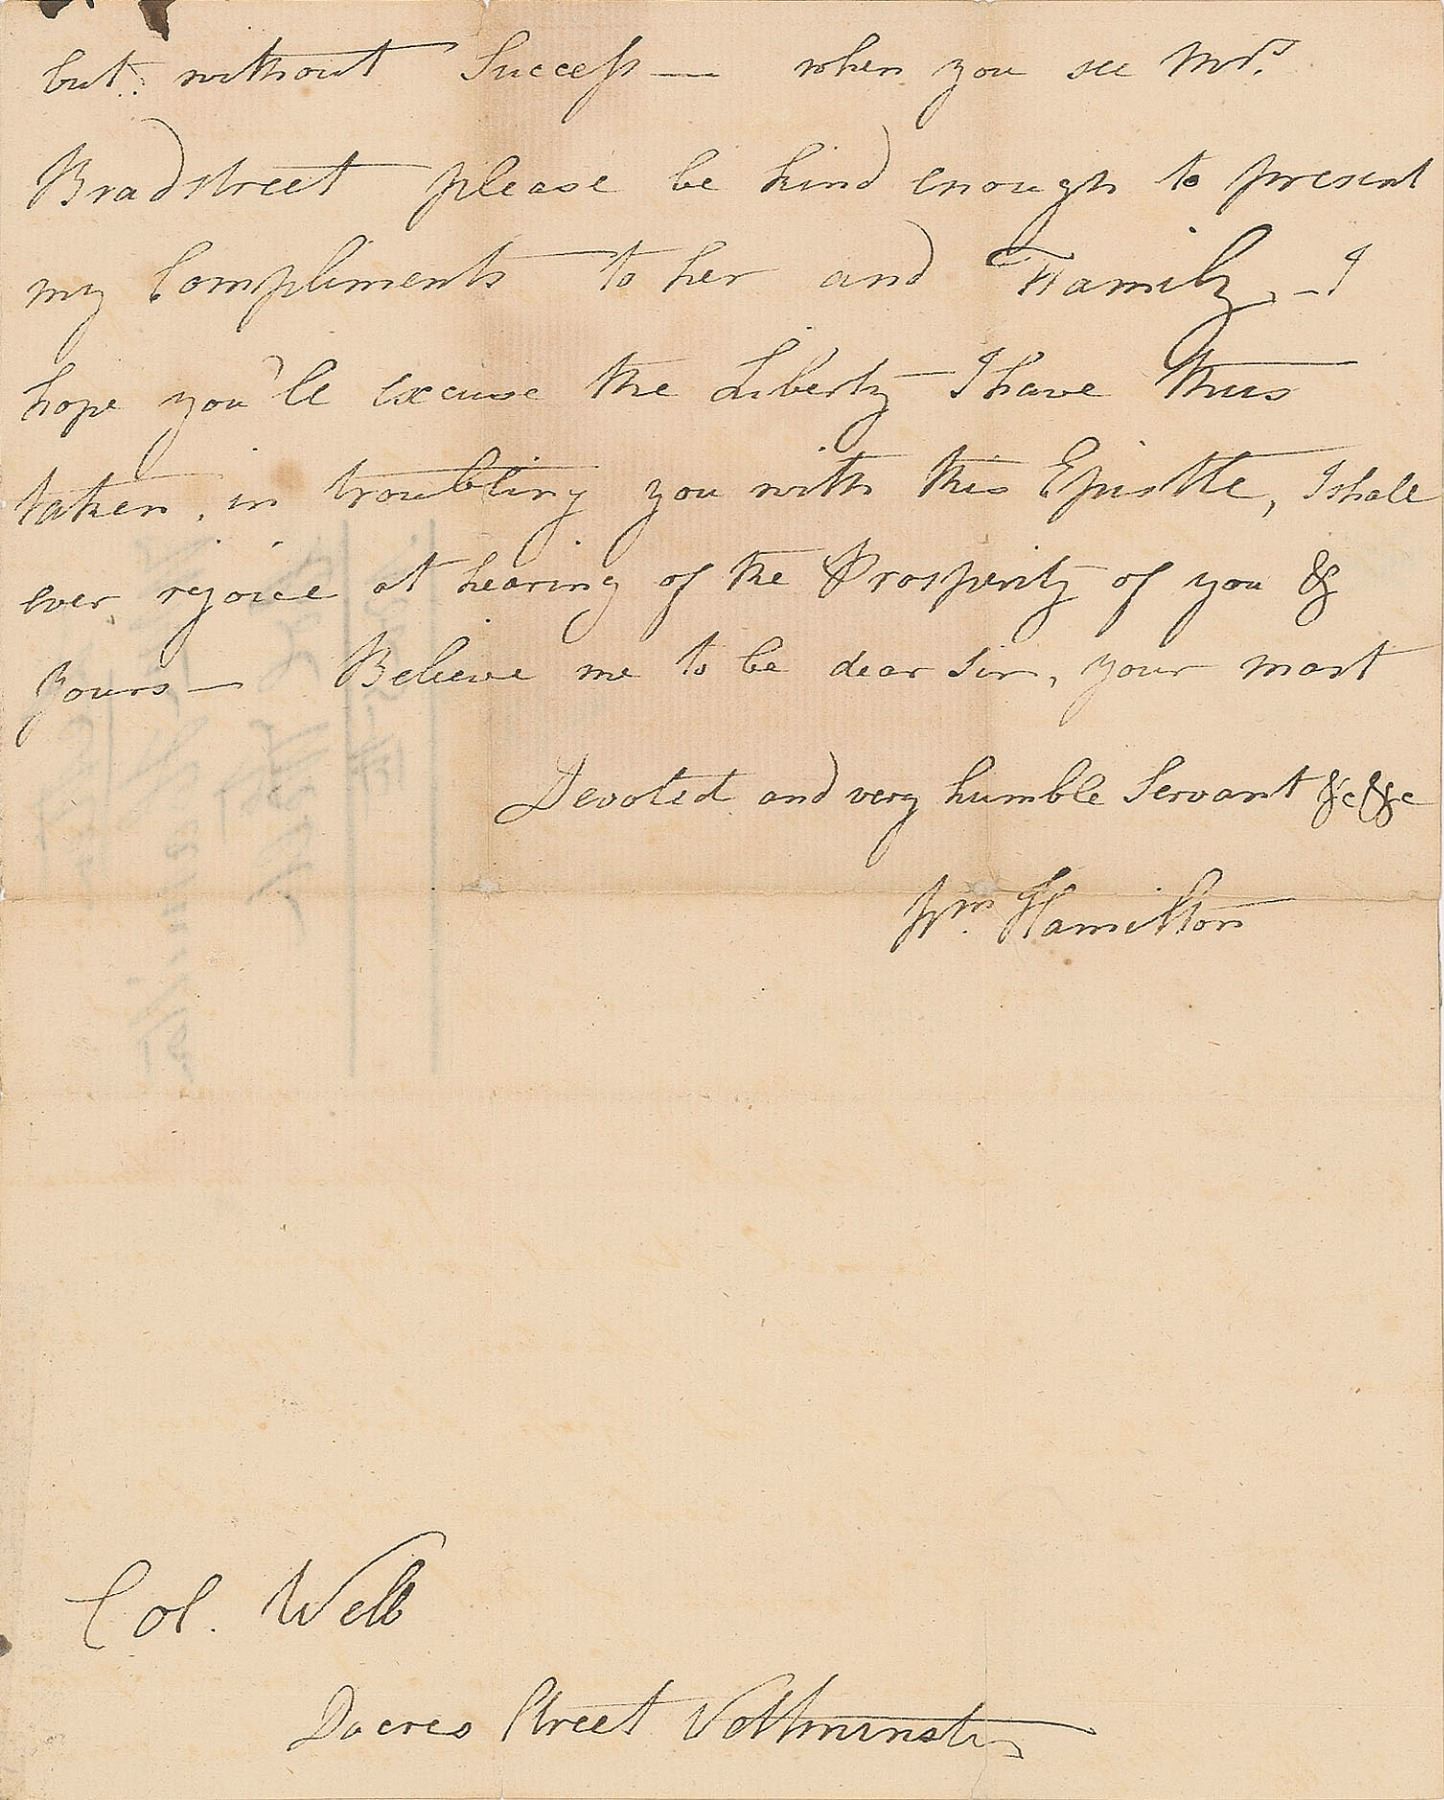 but without Success — when you see Mrs.
Bradstreet please be kind enough to present
my Compliments to her and Family — I
hope you'll excuse the Liberty I have thus
taken, in troubling you with this Epistle, I shall
ever rejoice at hearing of the Prosperity of you &
yours — Believe me to be dear Sir, your most
Devoted and very humble Servant &c &c
Wm. Hamilton
Col. Webb
Dacres Street Westminster